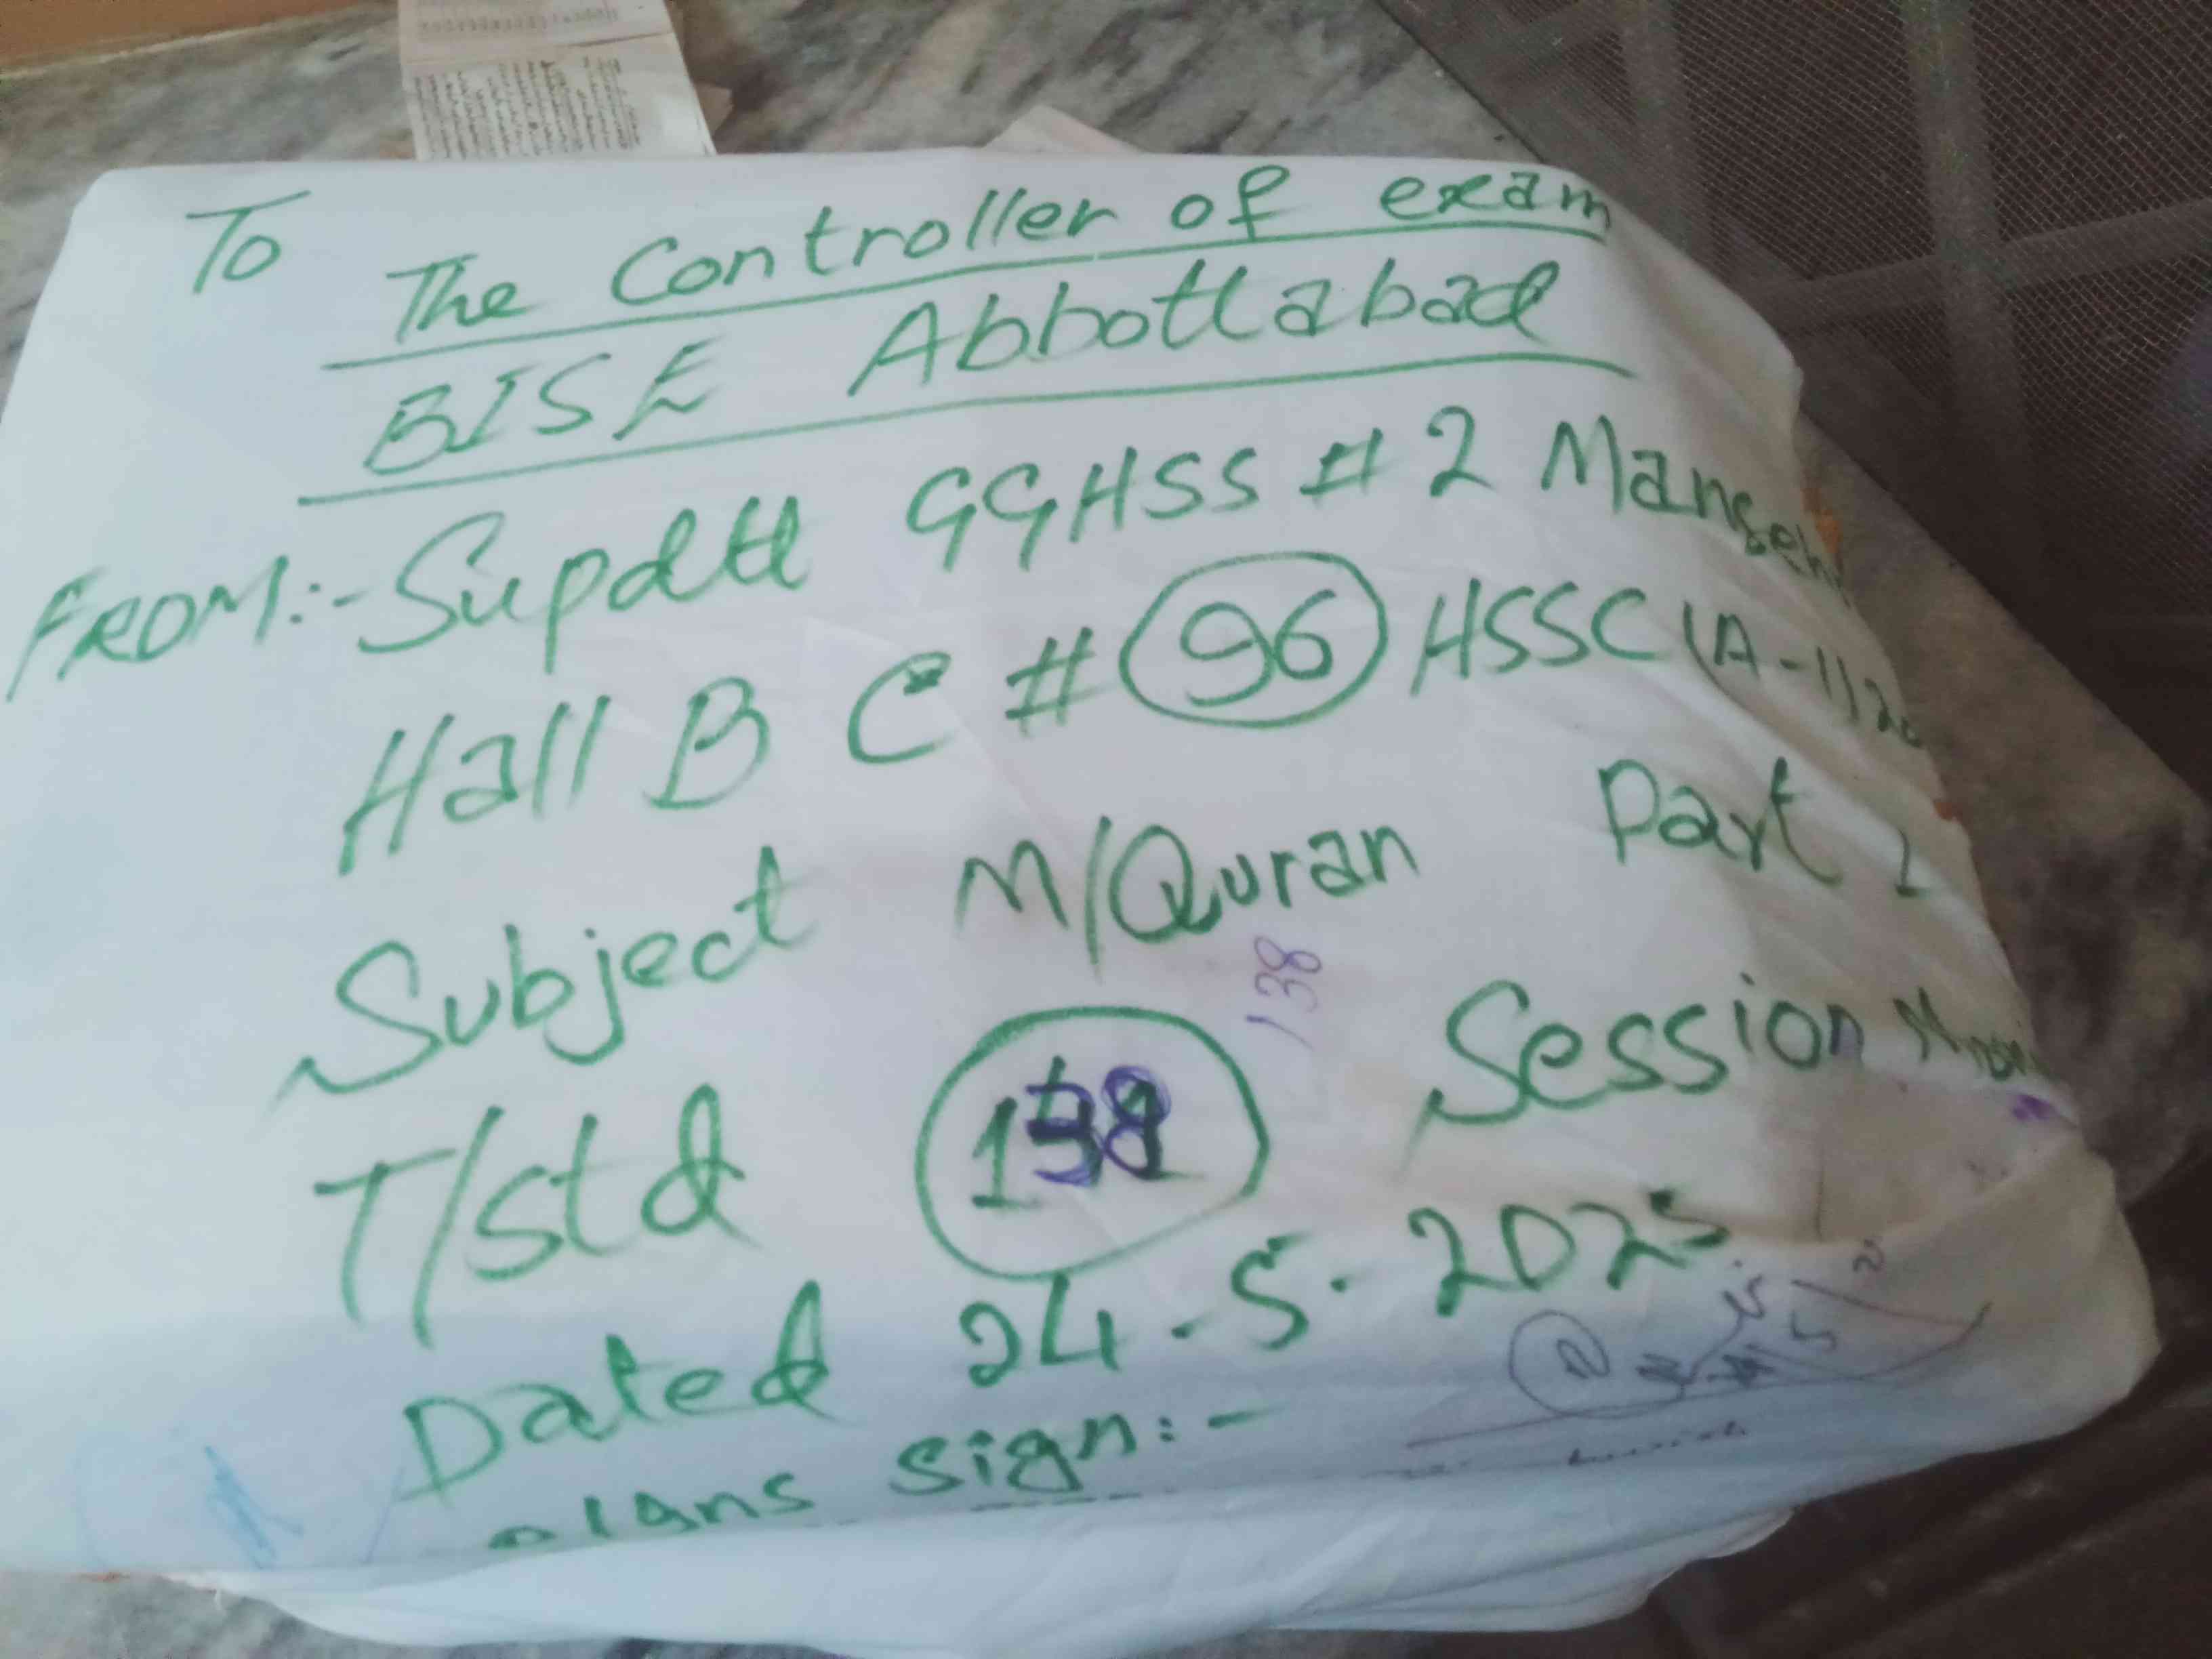 To
The Controller of exam
BISE Abbottabad
FROM:- Supdtt GGHSS # 2 Manseh
Hall B C # 96 HSSC (A-1) 20
Subject M/Quran Part 1
138
T/std 138 Session
Dated 24-5-2025
sign:-